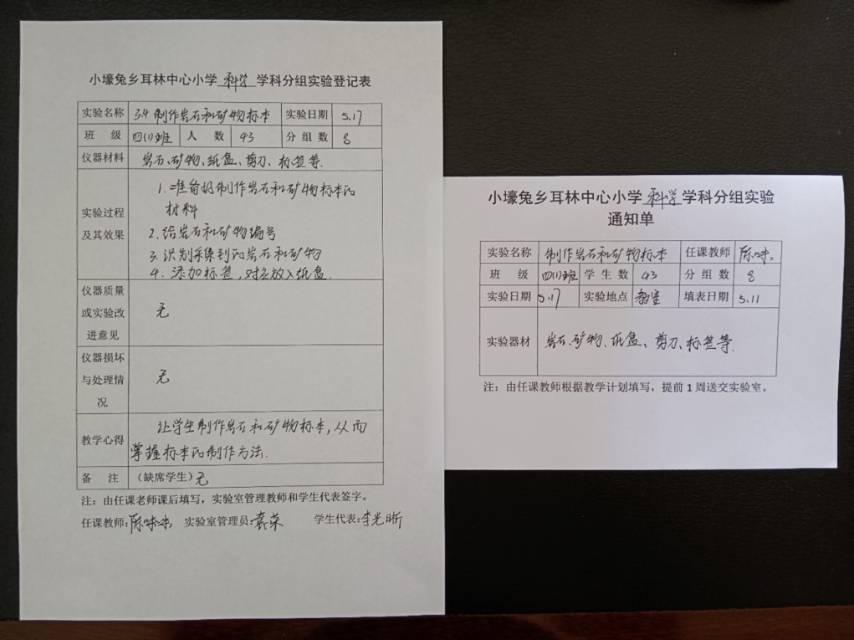 小壕兔乡耳林中心小学 科学 学科分组实验登记表
实验名称 3.4 制作岩石和矿物标本 实验日期 5.17
班 级 四(1)班 人 数 43 分组数 8
仪器材料 岩石、矿物、纸盒、剪刀、标签等.
实验过程及其效果
1. 准备好制作岩石和矿物标本的
材料
2. 给岩石和矿物编号
3. 识别采集到的岩石和矿物
4. 添加标签,对应放入纸盒.
仪器质量或实验改进意见 无
仪器损坏与处理情况 无
教学心得 让学生制作岩石和矿物标本,从而
掌握标本的制作方法.
备 注 (缺席学生)无
注:由任课老师课后填写,实验室管理教师和学生代表签字。
任课教师: 实验室管理员:袁荣 学生代表:李光昕
小壕兔乡耳林中心小学 科学 学科分组实验
通知单
实验名称 制作岩石和矿物标本 任课教师
班 级 四(1)班 学生数 43 分组数 8
实验日期 5.17 实验地点 教室 填表日期 5.11
实验器材 岩石、矿物、纸盒、剪刀、标签等.
注:由任课教师根据教学计划填写,提前1周送交实验室。